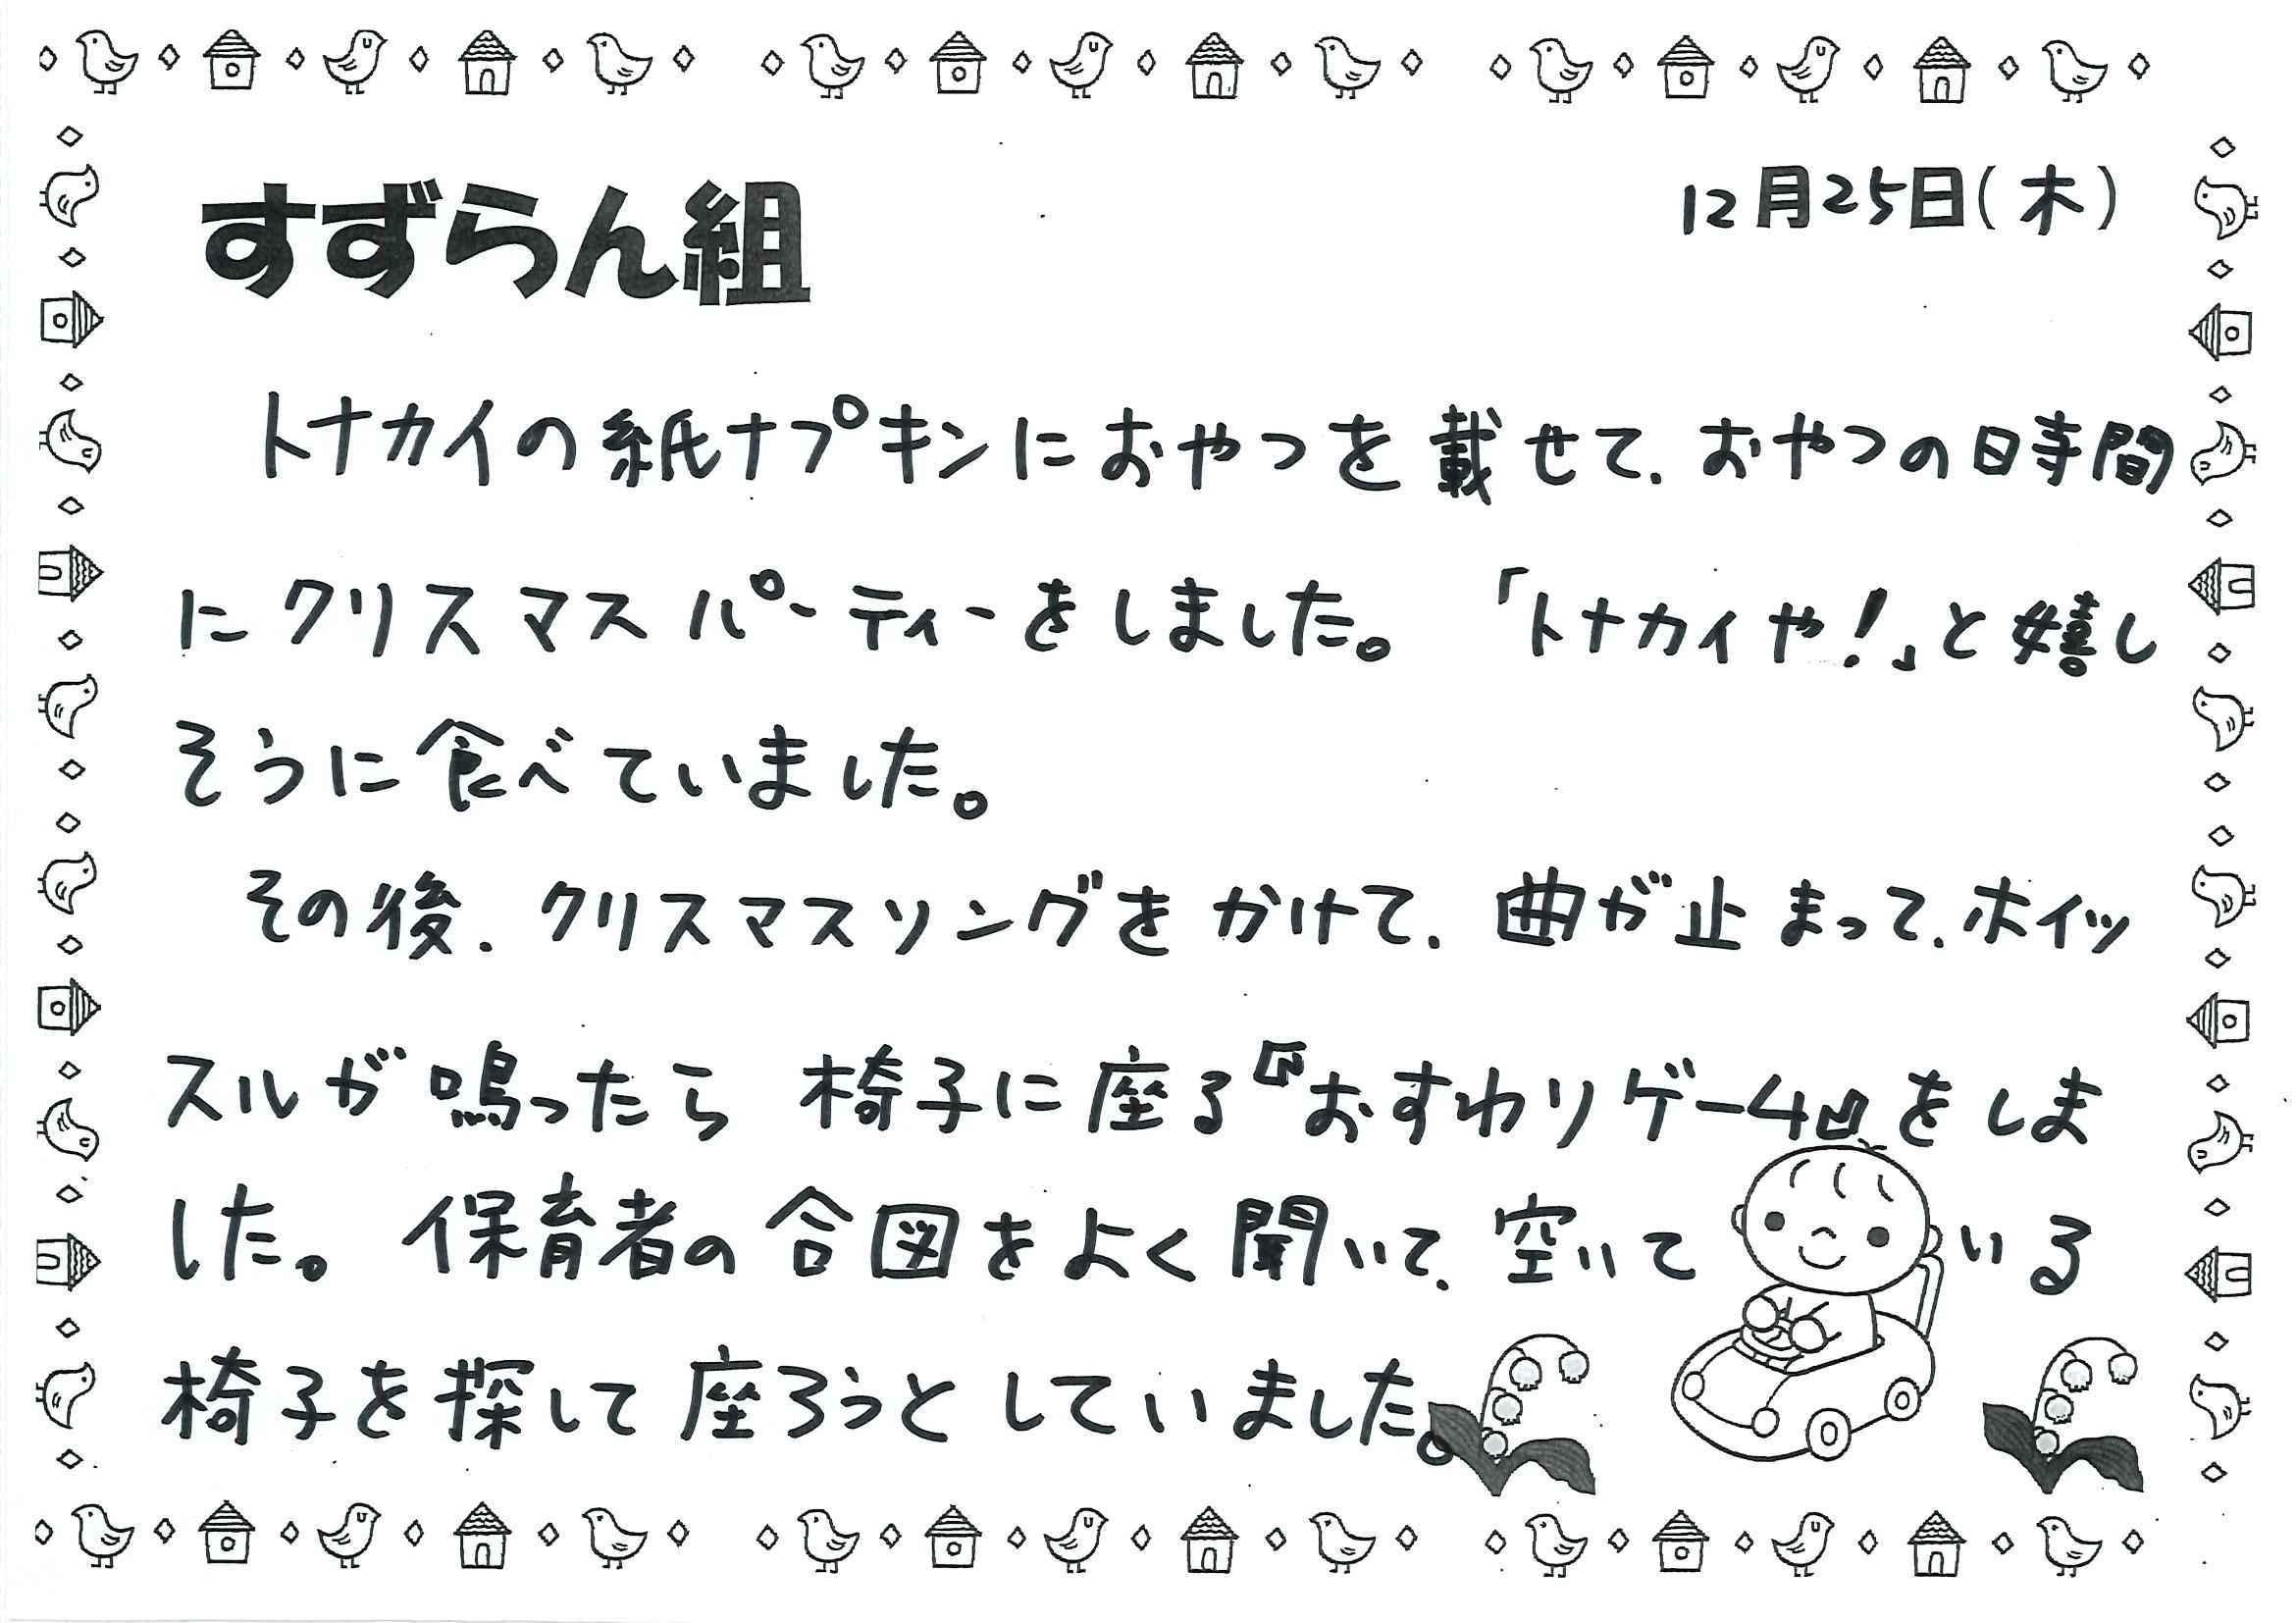 すずらん組
12月25日(木)
トナカイの紙ナプキンにおやつを載せて、おやつの時間
にクリスマスパーティーをしました。「トナカイや!」と嬉し
そうに食べていました。
その後、クリスマスソングをかけて、曲が止まって、ホイッ
スルが鳴ったら椅子に座る『おすわりゲーム』をしま
した。保育者の合図をよく聞いて、空いている
椅子を探して座ろうとしていました。